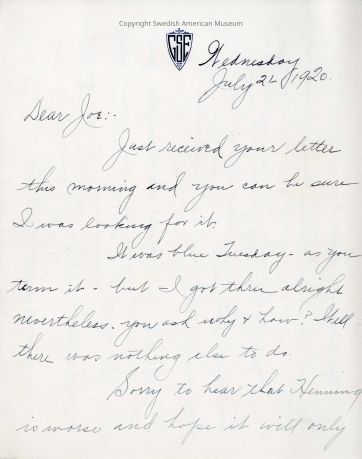 Copyright Swedish American Museum
GSE
Wednesday
July 21- 1920.
Dear Joe:-
Just received your letter
this morning and you can be sure
I was looking for it.
It was blue Tuesday - as you
term it - but I got thru alright
nevertheless. you ask why & how? Well
there was nothing else to do.
Sorry to hear that Henning
is worse and hope it will only